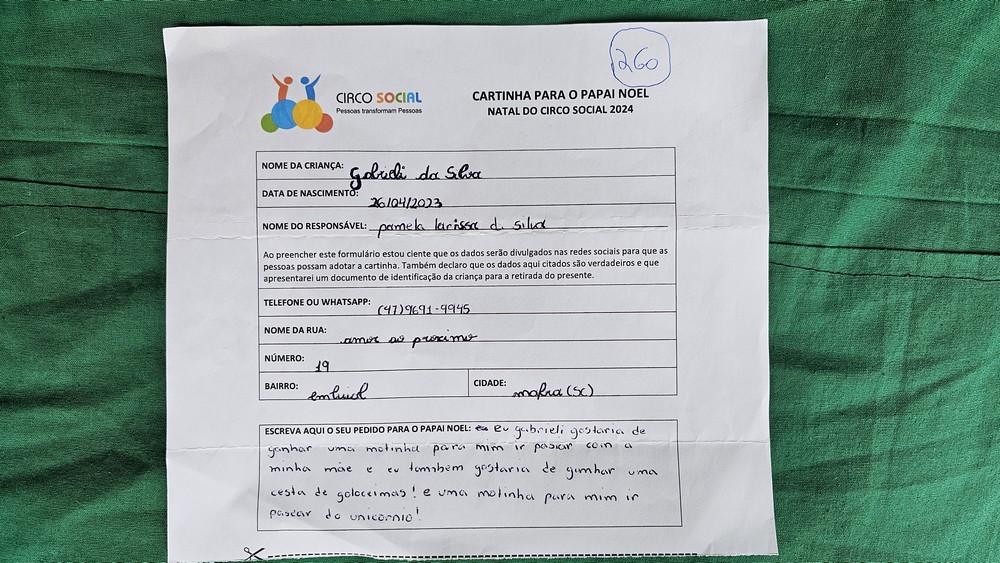 260
CIRCO SOCIAL
Pessoas transformam Pessoas
CARTINHA PARA O PAPAI NOEL
NATAL DO CIRCO SOCIAL 2024
NOME DA CRIANÇA: Gabrieli da Silva
DATA DE NASCIMENTO: 26/04/2023
NOME DO RESPONSÁVEL: pamela larissa d. silva
Ao preencher este formulário estou ciente que os dados serão divulgados nas redes sociais para que as
pessoas possam adotar a cartinha. Também declaro que os dados aqui citados são verdadeiros e que
apresentarei um documento de identificação da criança para a retirada do presente.
TELEFONE OU WHATSAPP: (47)9691-9945
NOME DA RUA: amor ao proximo
NÚMERO: 19
BAIRRO: CIDADE: mafra (SC)
ESCREVA AQUI O SEU PEDIDO PARA O PAPAI NOEL: eu eu gabrieli gostaria de
ganhar uma motinha para mim ir pasiar com a
minha mãe e eu tambem gostaria de ganhar uma
cesta de goloceimas! e uma motinha para mim ir
pasear do unicornio!